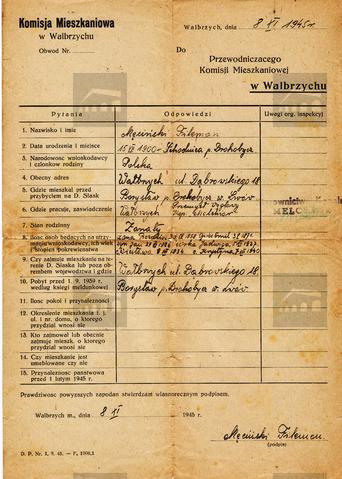 Komisja Mieszkaniowa
w Wałbrzychu
Obwod Nr.
Wałbrzych, dnia 8 XI 1945 r.
Do
Przewodniczącego
Komisji Mieszkaniowej
w Wałbrzychu
Pytania Odpowiedzi Uwagi org. inspekcyj
1. Nazwisko i imię Męciński Fileman
2. Data urodzenia i miejsce 15 1900 Schodnica p. Drohobycz
3. Narodowośc wnioskodawcy i członkow rodziny Polska
4. Obecny adres Wałbrzych ul. Dąbrowskiego 18
5. Gdzie mieszkał przed przybyciem na D. Sląsk Borysław p. Drohobycz w. Lwów
6. Gdzie pracuje, zaswiadczenie Wałbrzych
7. Stan rodzinny Żonaty
8. Ilosc osob bedacych na utrzymaniu wnioskodawcy, ich wiek i stopien pokrewienstwa żona
9. Czy zajmuje mieszkanie na terenie D. Sląska lub poza obrębem wojewodztwa i gdzie Wałbrzych ul. Dąbrowskiego 18
10. Pobyt przed 1. 9. 1939 r. według księgi meldunkowej Borysław p. Drohobycz w. Lwów
11. Ilosc pokoi i przynaleznosci
12. Okreslenie mieszkania t. j. ul. i nr. domu, o ktorego przydział wnosi sie
13. Kto zajmował lub obecnie zajmuje mieszk. o ktorego przydział wnosi sie
14. Czy mieszkanie jest umeblowane czy nie
15. Przynaleznosc panstwowa przed 1 lutym 1945 r.
Prawdziwosc powyzszych zapodan stwierdzam własnorecznym podpisem.
Wałbrzych m., dnia 8 XI 1945 r.
Męciński Fileman
(podpis)
D. P. Nr. 1, 9. 45. – F, 1000,1